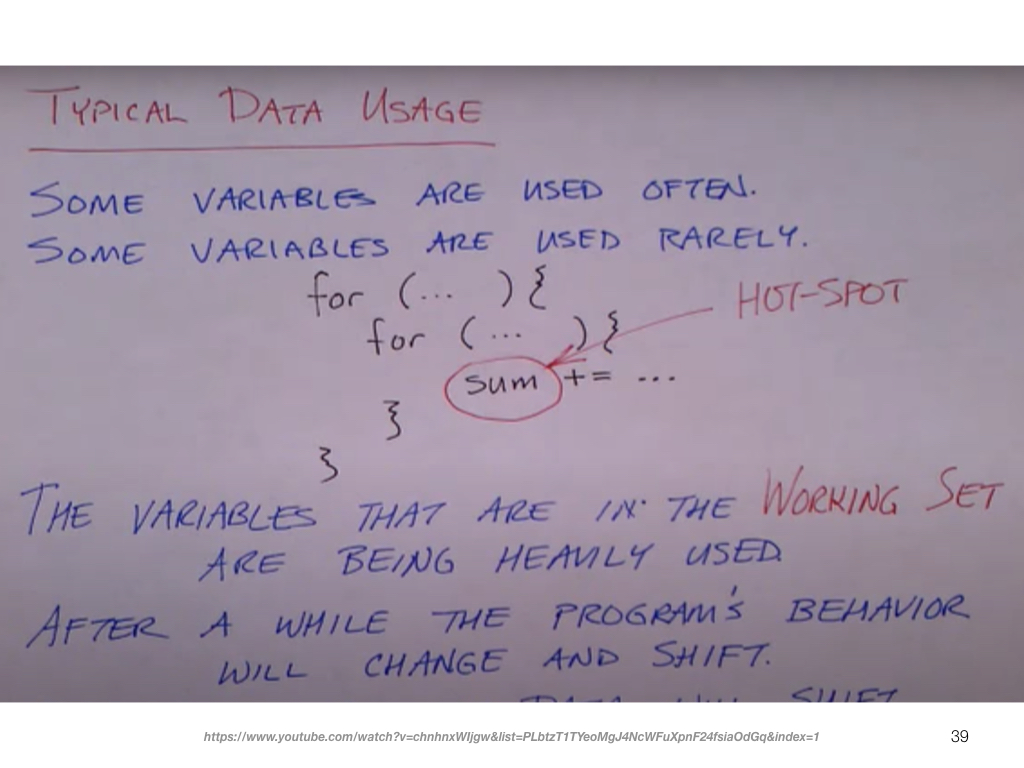 TYPICAL DATA USAGE
SOME VARIABLES ARE USED OFTEN.
SOME VARIABLES ARE USED RARELY.
for (... ) {
HOT-SPOT
for (... ) {
sum += ...
}
}
THE VARIABLES THAT ARE IN THE WORKING SET
ARE BEING HEAVILY USED.
AFTER A WHILE THE PROGRAM'S BEHAVIOR
WILL CHANGE AND SHIFT.
https://www.youtube.com/watch?v=chnhnxWIjgw&list=PLbtzT1TYeoMgJ4NcWFuXpnF24fsiaOdGq&index=1
39